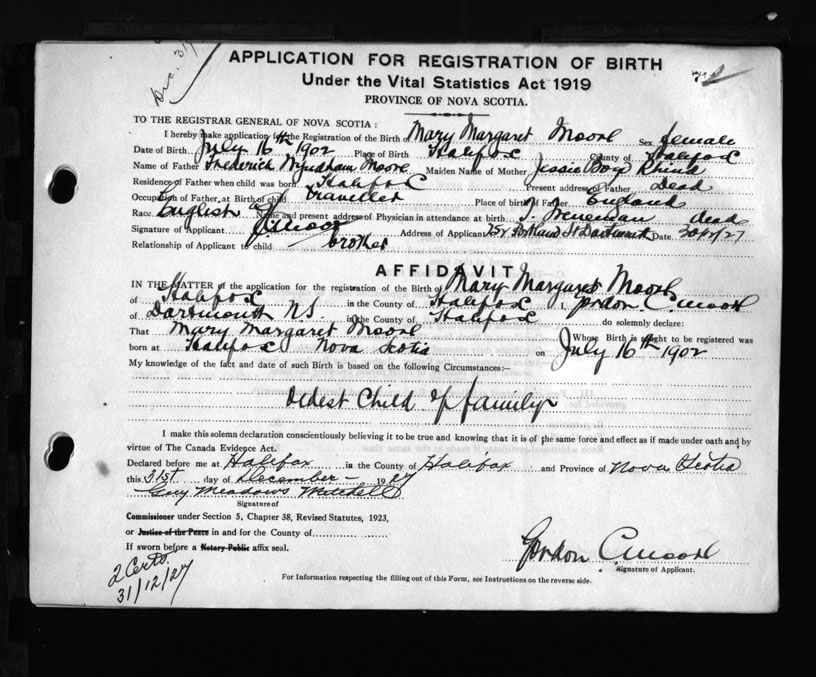 Dec. 31/
APPLICATION FOR REGISTRATION OF BIRTH
Under the Vital Statistics Act 1919
PROVINCE OF NOVA SCOTIA.
TO THE REGISTRAR GENERAL OF NOVA SCOTIA :
I hereby make application for the Registration of the Birth of Mary Margaret Moore Sex female
Date of Birth July 16th 1902 Place of Birth Halifax County of Halifax
Name of Father Frederick Wyndham Moore Maiden Name of Mother Jessie Boyd Rhind
Residence of Father when child was born Halifax Present address of Father Dead
Occupation of Father, at Birth of child Traveller Place of birth of Father England
Race. English Name and present address of Physician in attendance at birth T. Treneman dead
Signature of Applicant Address of Applicant Portland St Dartmouth Date
Relationship of Applicant to child brother
AFFIDAVIT
IN THE MATTER of the application for the registration of the Birth of Mary Margaret Moore
of Halifax in the County of Halifax I, Gordon C. Moore
of Dartmouth N.S. in the County of Halifax do solemnly declare:
That Mary Margaret Moore Whose Birth is sought to be registered was
born at Halifax Nova Scotia on July 16th 1902
My knowledge of the fact and date of such Birth is based on the following Circumstances:—
Oldest Child of family
I make this solemn declaration conscientiously believing it to be true and knowing that it is of the same force and effect as if made under oath and by
virtue of The Canada Evidence Act.
Declared before me at Halifax in the County of Halifax and Province of Nova Scotia
this 31st day of December 1927
Guy Meadows Mitchell
Signature of
Commissioner under Section 5, Chapter 38, Revised Statutes, 1923,
or Justice of the Peace in and for the County of
If sworn before a Notary Public affix seal.
Gordon C. Moore
Signature of Applicant.
2 Certs.
31/12/27
For Information respecting the filling out of this Form, see Instructions on the reverse side.